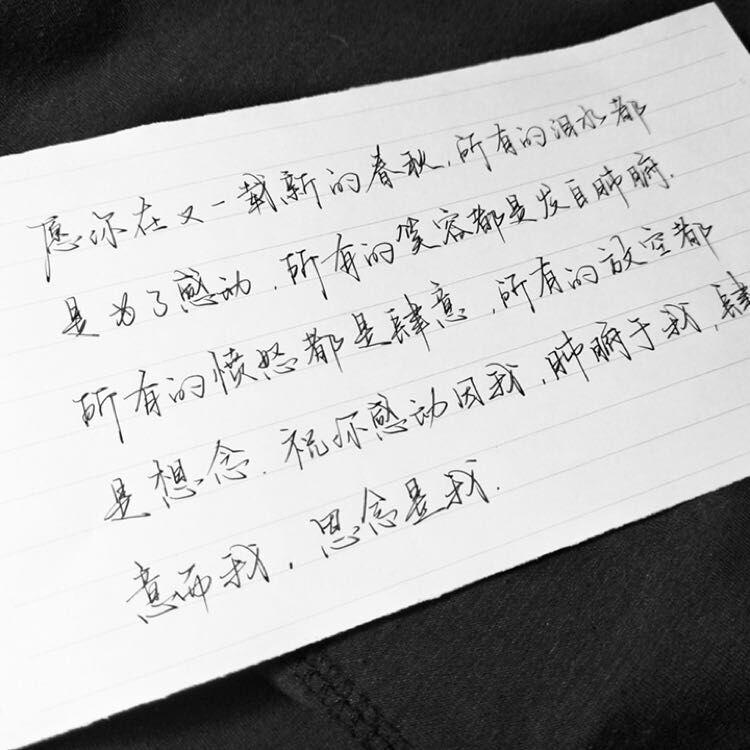 愿你在又一载新的春秋,所有的泪水都
是为了感动,所有的笑容都是发自肺腑.
所有的愤怒都是肆意,所有的放空都
是想念.祝你感动因我,肺腑于我,肆
意而我,思念是我.